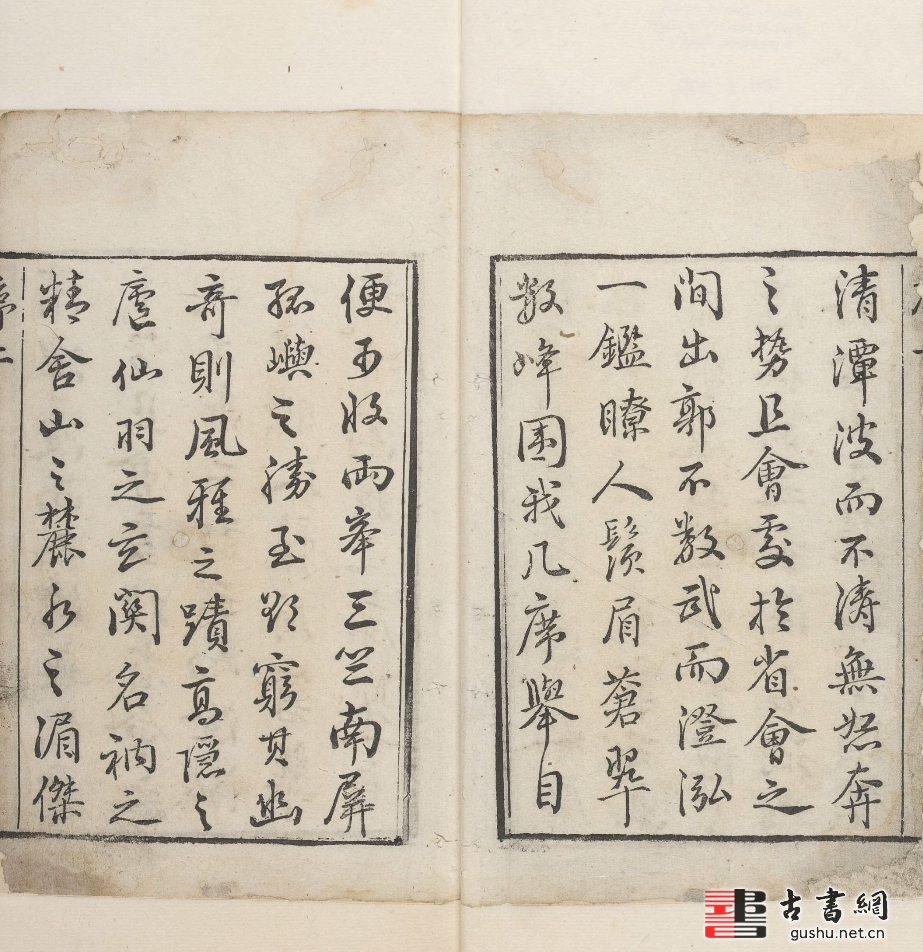 清潭波而不濤無怒奔
之勢且會處於省會之
間出郭不數武而澄泓
一鑑瞭人鬚眉蒼翠
數峰圍我几席舉目
便可收兩峯三竺南屏
孤嶼之勝至欲窮其幽
奇則風雅之蹟高隱之
廬仙羽之玄關名衲之
精舍山之麓水之湄傑
序二
古書網
gushu.net.cn